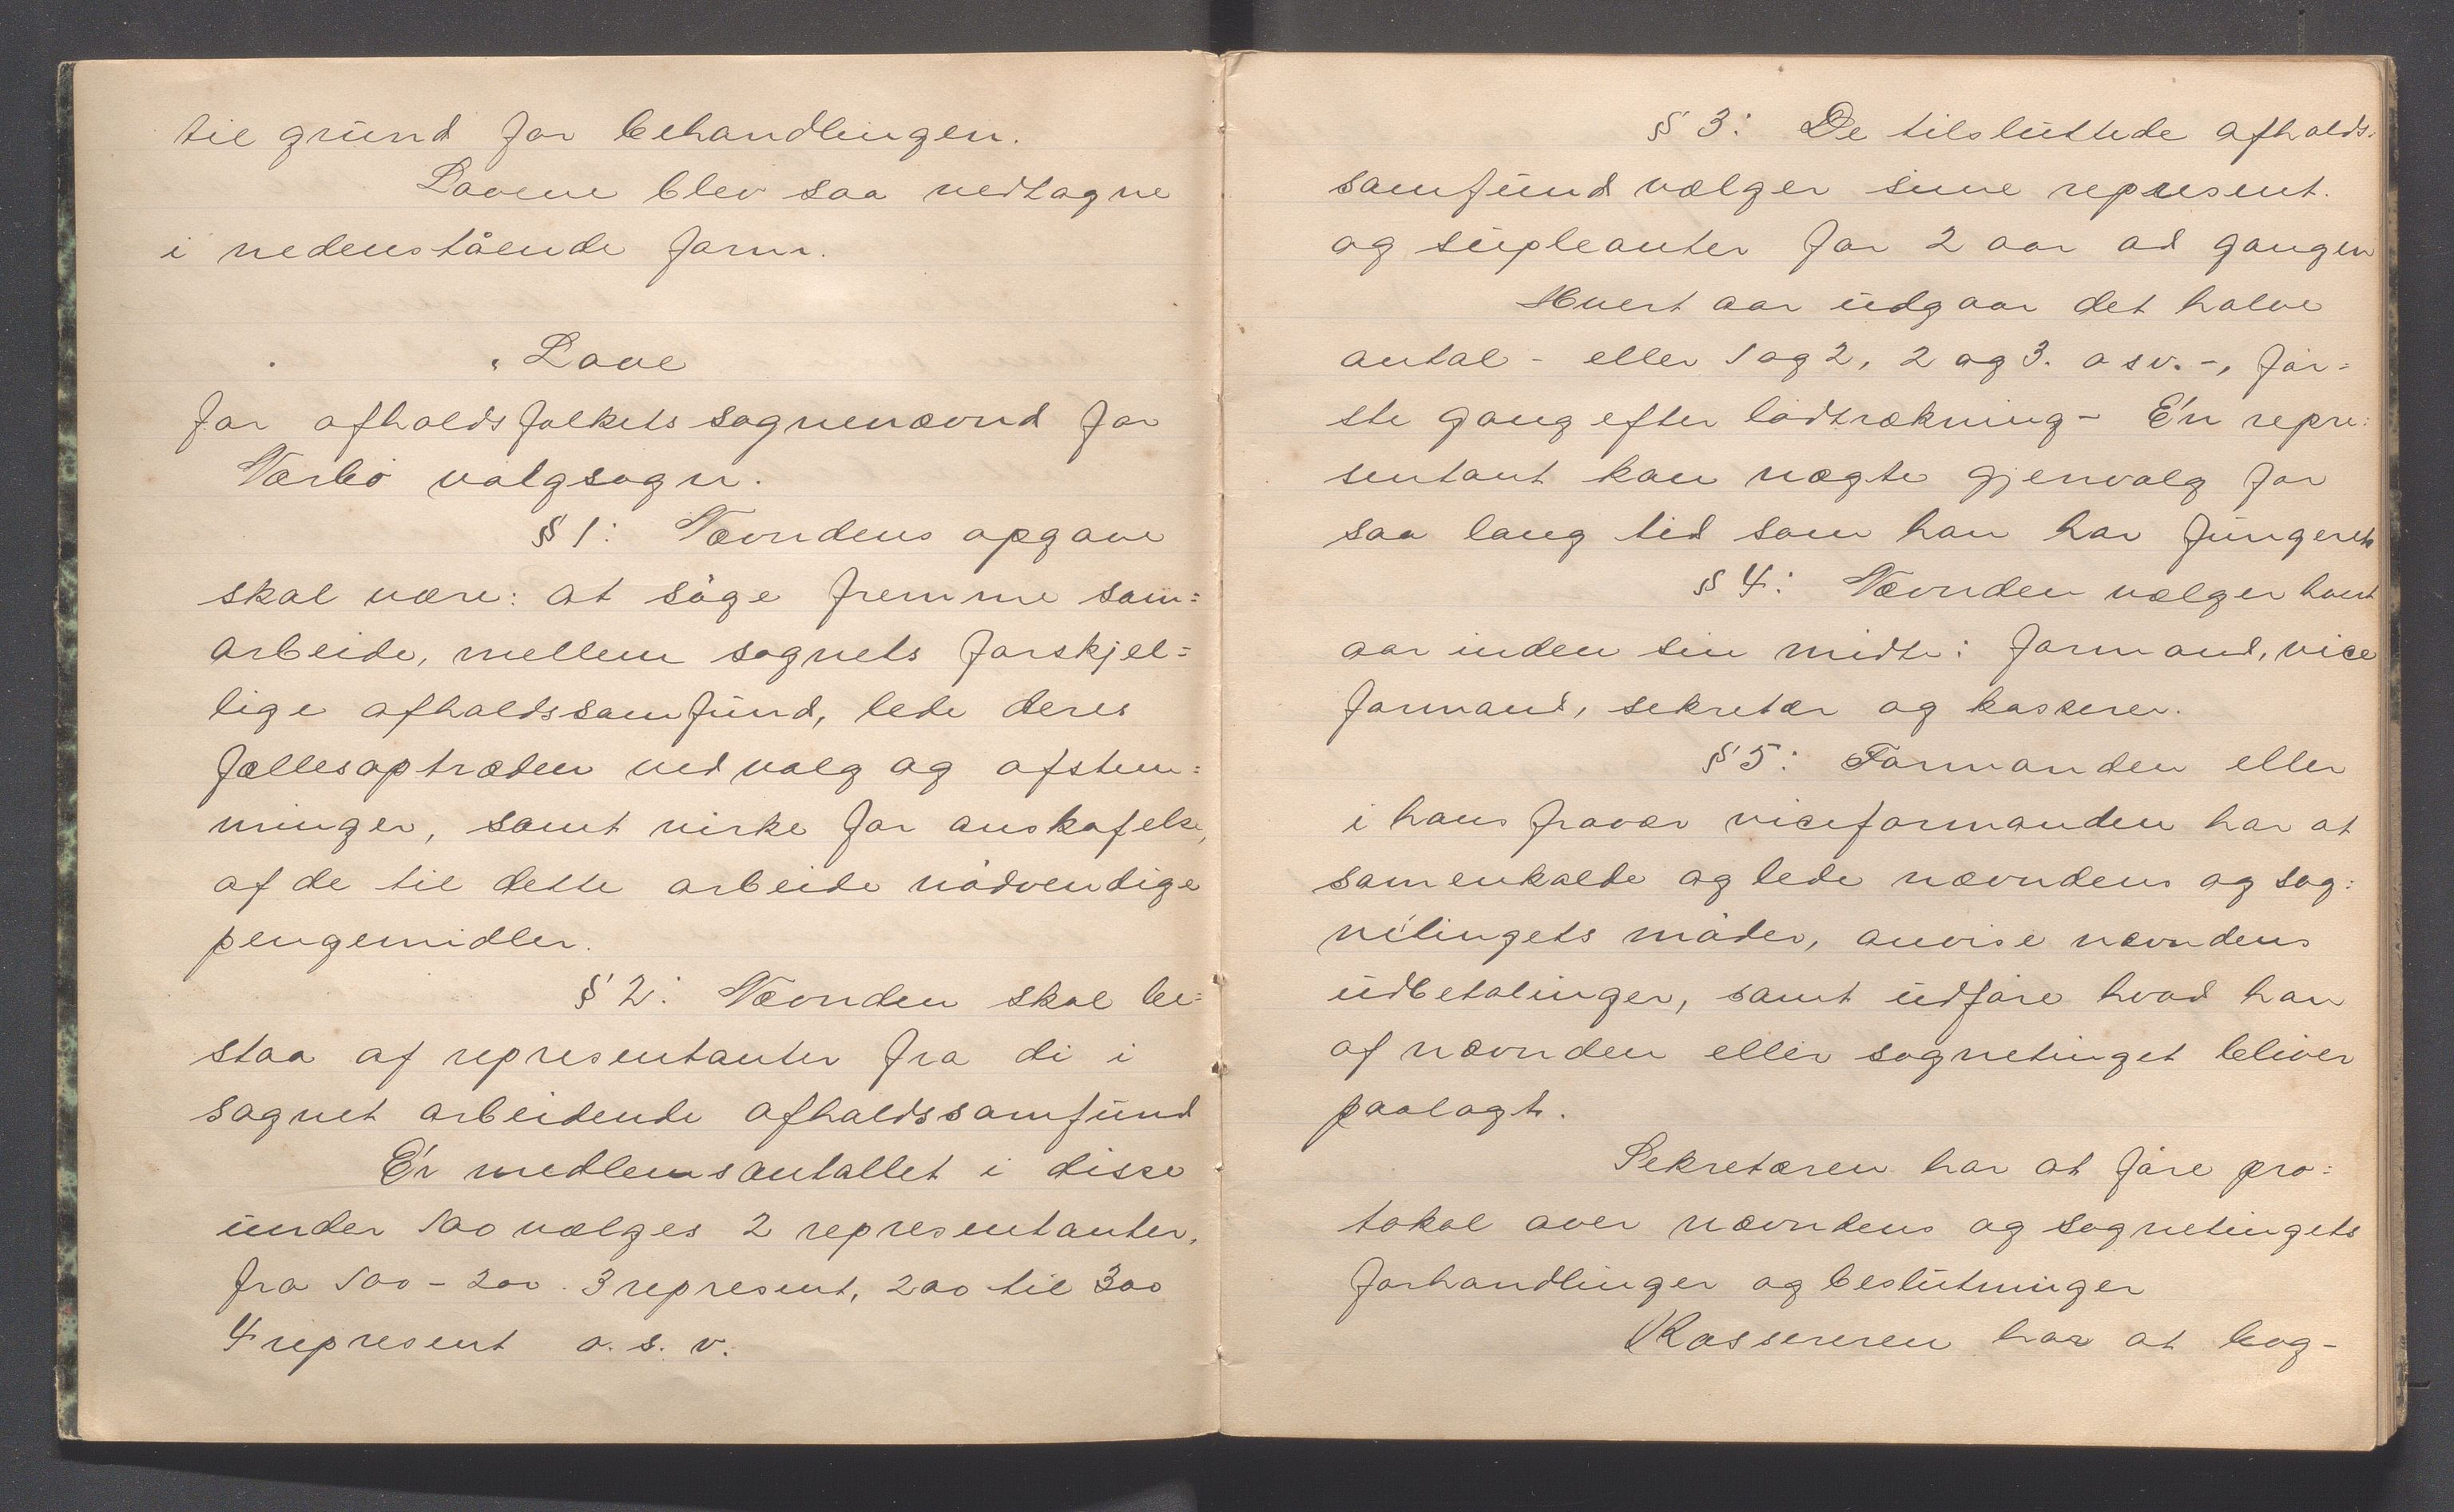 til grund for behandlingen.
Lovene blev saa vedtagne
i nedenstående form.
"Love
for afholdsfolkets sognenævnd for
Nærbö valgsogn.
§ 1: Nævndens opgave
skal være: at söge fremme sam=
arbeide, mellem sognets forskjel=
lige afholdssamfund, lede deres
fællesoptræden ved valg og afstem=
ninger, samt virke for anskafelse,
af de til dette arbeide nödvendige
pengemidler.
§ 2: Nævnden skal be=
staa af representanter fra di i
sognet arbeidende afholdssamfund
Er medlemsantallet i disse
under 100 vælges 2 representanter,
fra 100 - 200. 3 represent, 200 til 300
4 represent o. s. v.
§ 3: De tilsluttede afholds=
samfund vælger sine represent.
og supleanter for 2 aar ad gangen
Hvert aar udgaar det halve
antal - eller 1 og 2, 2 og 3. o s v. -, för=
ste gang efter lodtrækning - En repre=
sentant kan nægte gjenvalg for
saa lang tid som han har fungeret
§ 4: Nævnden vælger hvert
aar inden sin midte: formand, vice
formand, sekretær og kasserer.
§ 5: Formanden eller
i hans fravær viceformanden har at
samenkalde og lede nævndens og sog=
netingets möder, anvise nævndens
udbetalinger, samt udföre hvad han
af nævnden eller sognetinget bliver
paalagt.
Sekretæren har at före pro=
tokol over nævndens og sognetingets
forhandlinger og beslutninger
Kassereren har at bog-